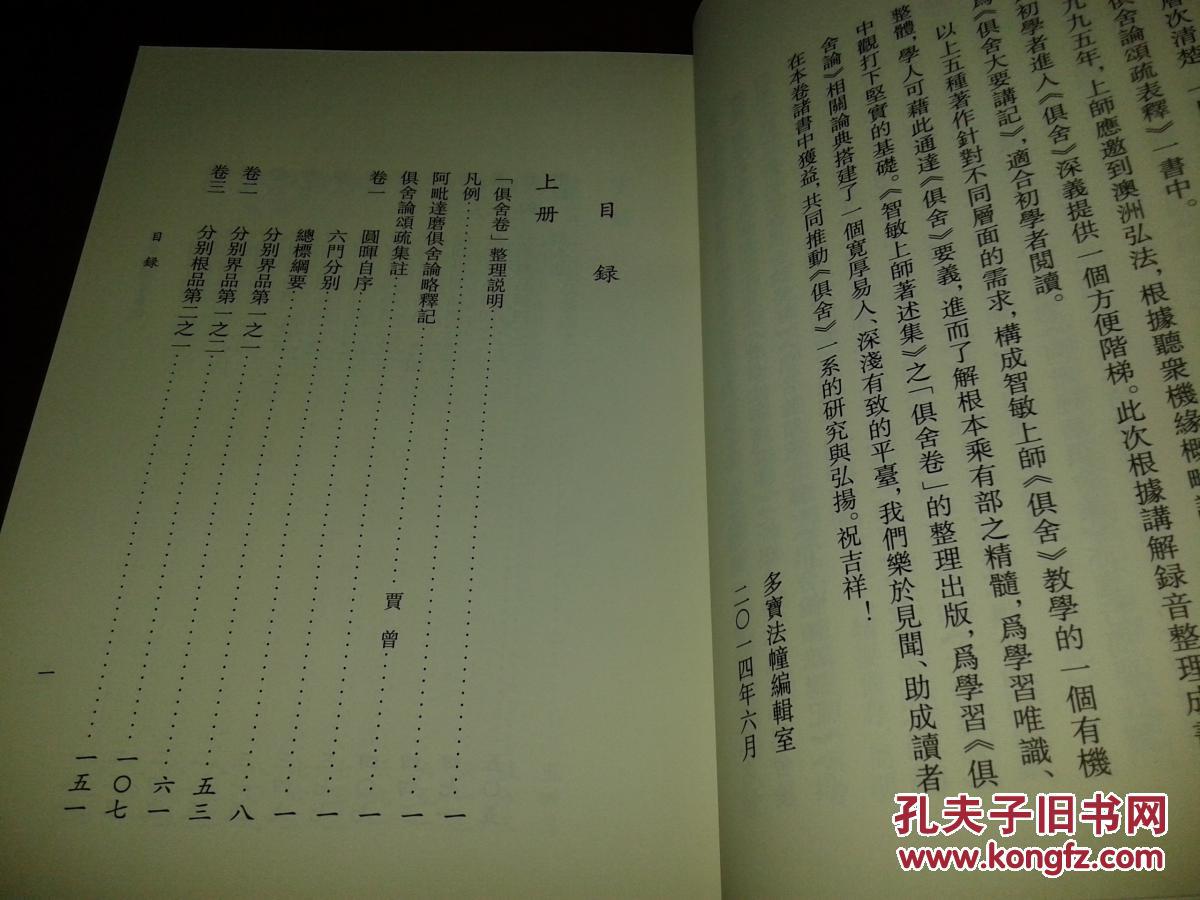 層次清楚，
俱舍論頌疏表釋》一書中。
九九五年，上師應邀到澳洲弘法，根據聽衆機緣概略
初學者進入《俱舍》深義提供一個方便階梯。此次根據講解録音整理成
爲《俱舍大要講記》，適合初學者閱讀。
以上五種著作針對不同層面的需求，構成智敏上師《俱舍》教學的一個有機
整體，學人可藉此通達《俱舍》要義，進而了解根本乘有部之精髓，爲學習唯識、
中觀打下堅實的基礎。《智敏上師著述集》之「俱舍卷」的整理出版，爲學習《俱
舍論》相關論典搭建了一個寬厚易入、深淺有致的平臺，我們樂於見聞、助成讀者
在本卷諸書中獲益，共同推動《俱舍》一系的研究與弘揚。祝吉祥！
多寶法幢編輯室
二〇一四年六月
目録
上册
「俱舍卷」整理説明 一
凡例 一
阿毗達磨俱舍論略釋記 一
俱舍論頌疏集註 賈曾 一
卷一 圓暉自序 一
六門分别 八
總標綱要 五三
分别界品第一之一 六一
卷二 分别界品第一之二 一〇七
卷三 分别根品第二之一 一五一
目録
一
孔夫子旧书网
www.kongfz.com